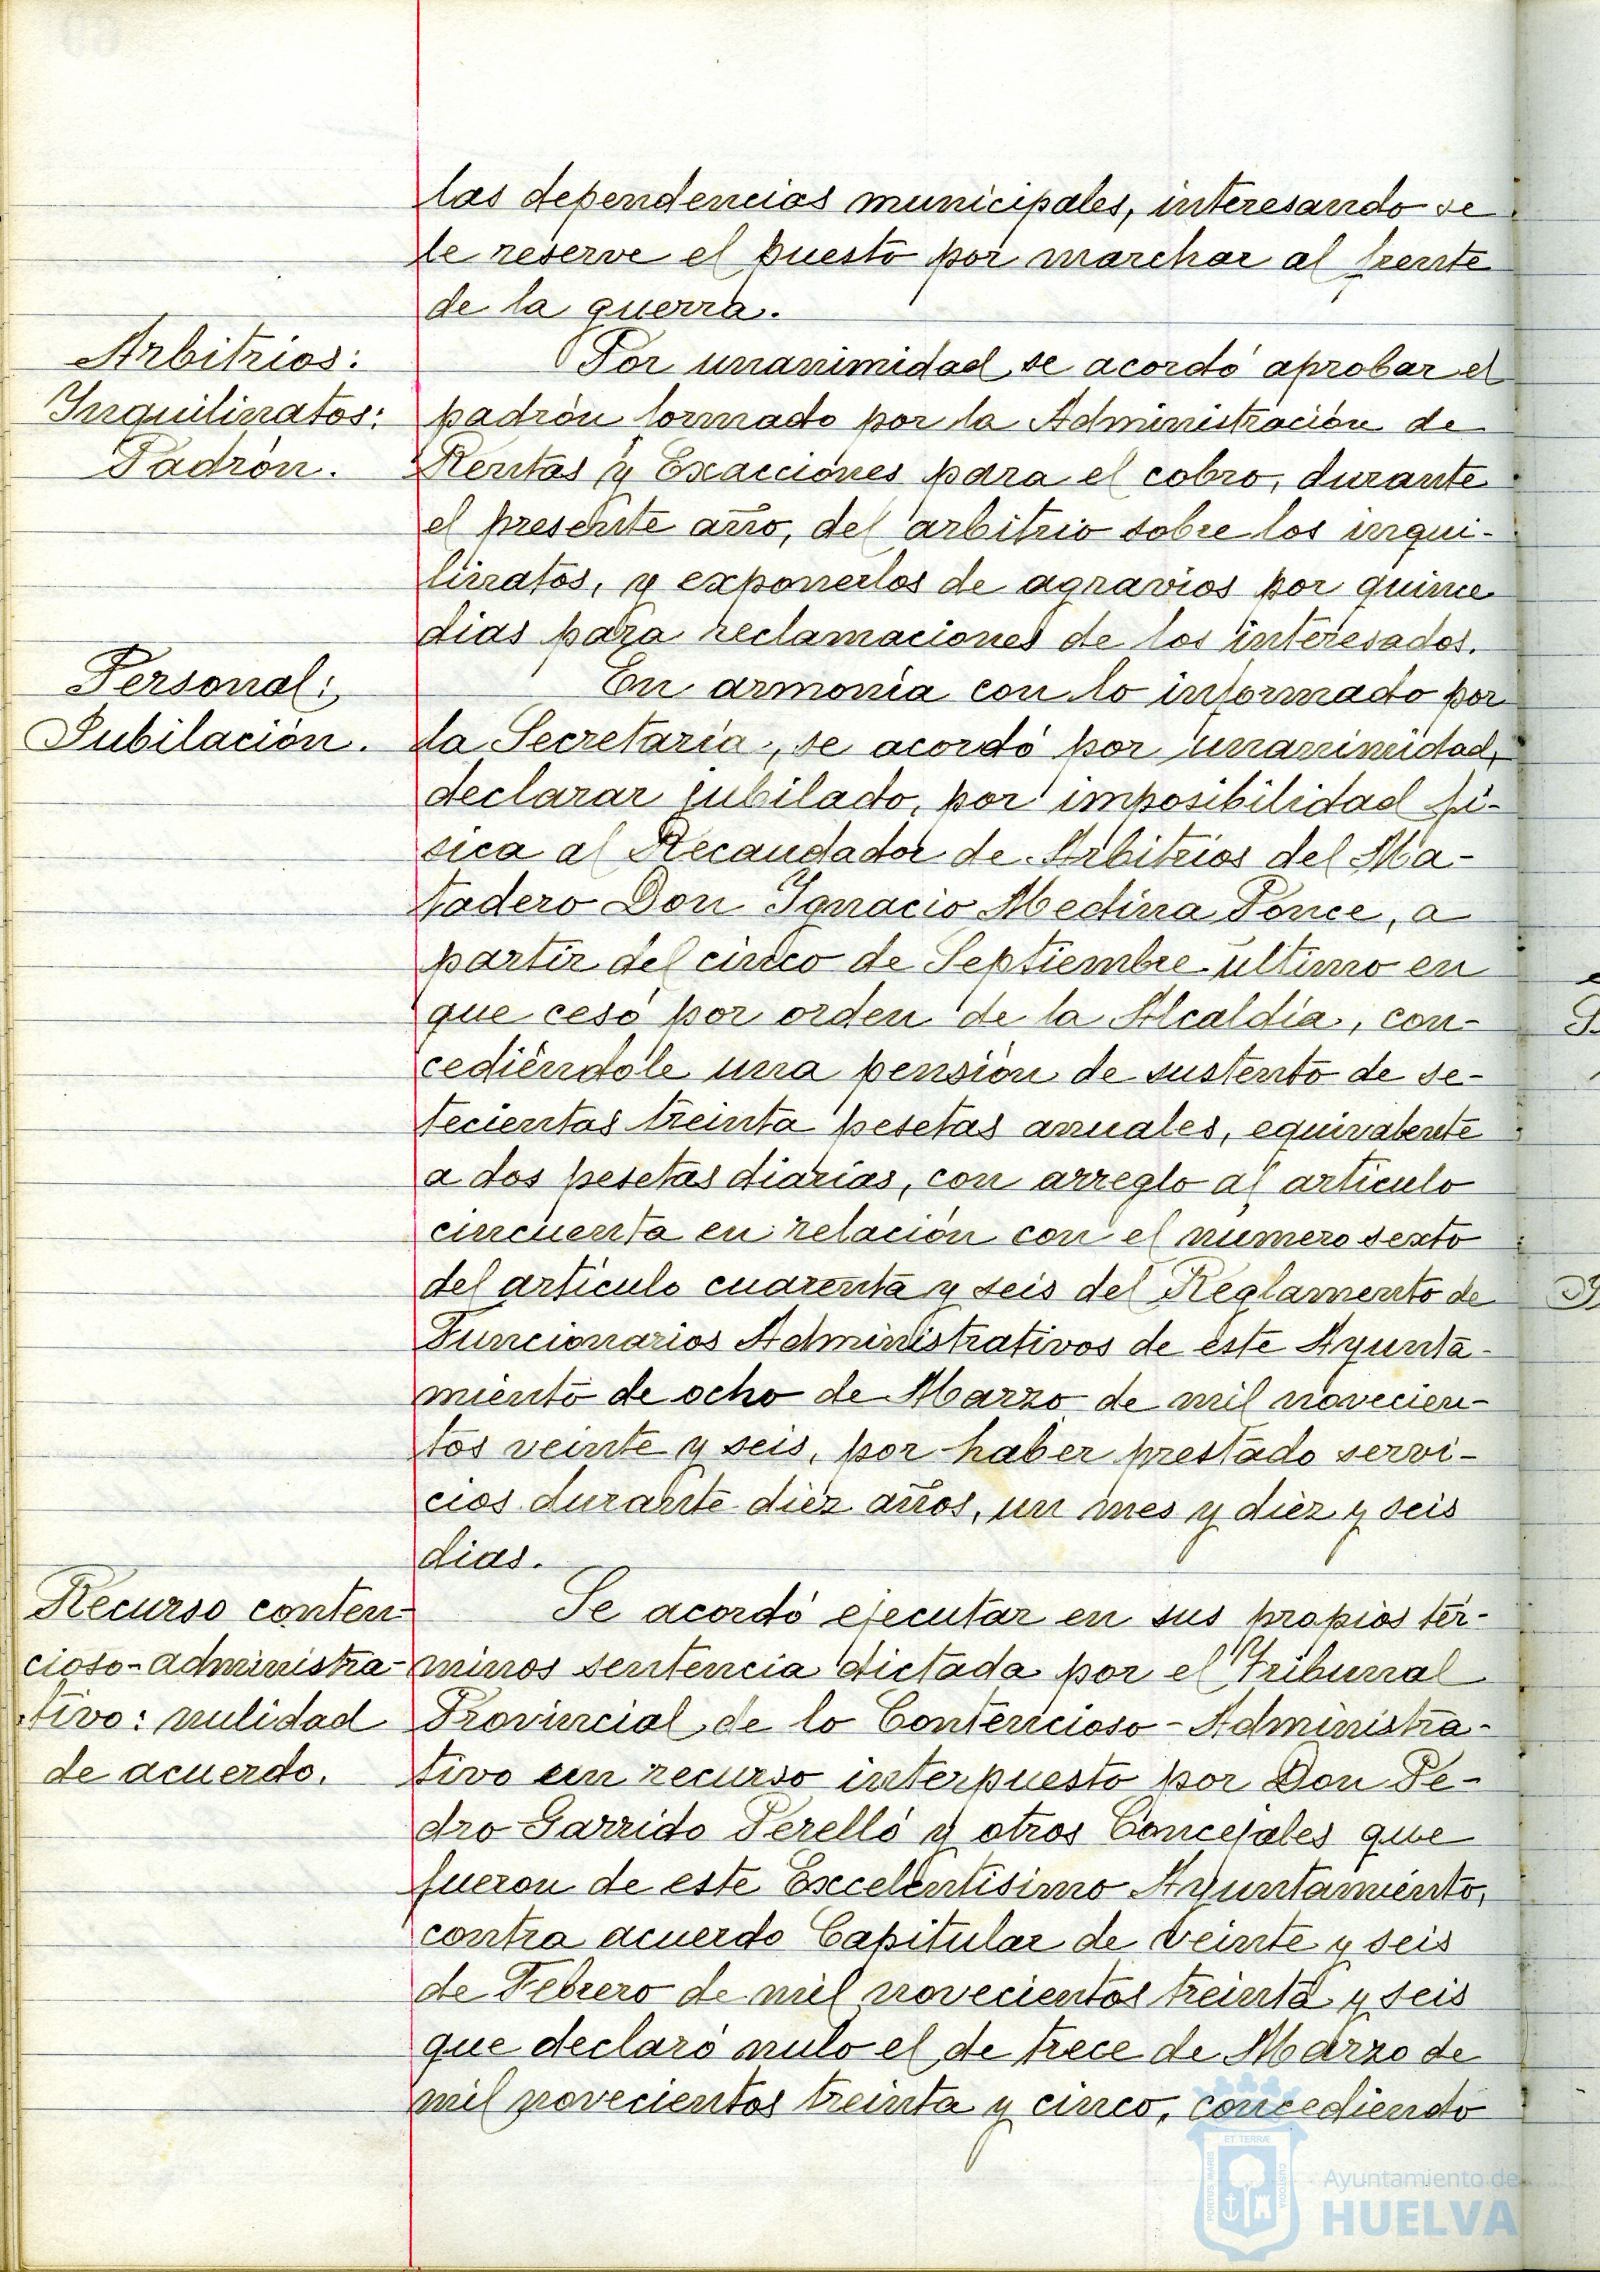 las dependencias municipales, interesando se
le reserve el puesto por marchar al frente
de la guerra.
Arbitrios:
Inquilinatos:
Padrón.
Por unanimidad se acordó aprobar el
padrón formado por la Administración de
Rentas y Exacciones para el cobro, durante
el presente año, del arbitrio sobre los inqui-
linatos, y exponerlos de agravios por quince
dias para reclamaciones de los interesados.
Personal:
Jubilación.
En armonía con lo informado por
la Secretaría, se acordó por unanimidad,
declarar jubilado, por imposibilidad fí-
sica al Recaudador de Arbitrios del Ma-
tadero Don Ignacio Medina Ponce, a
partir del cinco de Septiembre último en
que cesó por orden de la Alcaldía, con-
cediéndole una pensión de sustento de se-
tecientas treinta pesetas anuales, equivalente
a dos pesetas diarias, con arreglo al artículo
cincuenta en relación con el número sexto
del artículo cuarenta y seis del Reglamento de
Funcionarios Administrativos de este Ayunta-
miento de ocho de Marzo de mil novecien-
tos veinte y seis, por haber prestado servi-
cios durante diez años, un mes y diez y seis
dias.
Recurso conten-
cioso-administra-
tivo: nulidad
de acuerdo.
Se acordó ejecutar en sus propios tér-
minos sentencia dictada por el Tribunal
Provincial de lo Contencioso-Administra-
tivo en recurso interpuesto por Don Pe-
dro Garrido Perelló y otros Concejales que
fueron de este Excelentísimo Ayuntamiento,
contra acuerdo Capitular de veinte y seis
de Febrero de mil novecientos treinta y seis
que declaró nulo el de trece de Marzo de
mil novecientos treinta y cinco, concediendo
PORTUS MARIS
ET TERRÆ
CUSTODIA
Ayuntamiento de
HUELVA